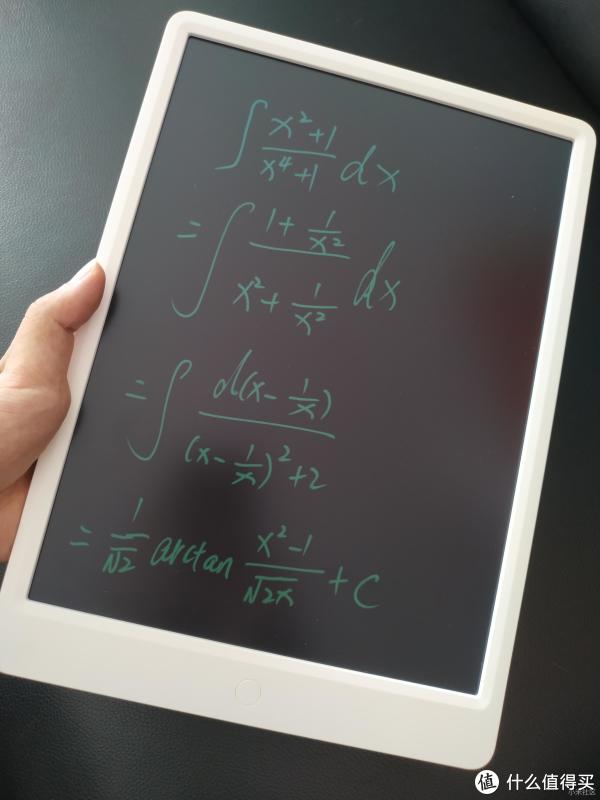 ∫ (x²+1)/(x⁴+1) dx
= ∫ (1 + 1/x²)/(x² + 1/x²) dx
= ∫ d(x - 1/x)/((x - 1/x)² + 2)
= 1/√2 arctan (x²-1)/(√2x) + C
值 什么值得买
小米社区